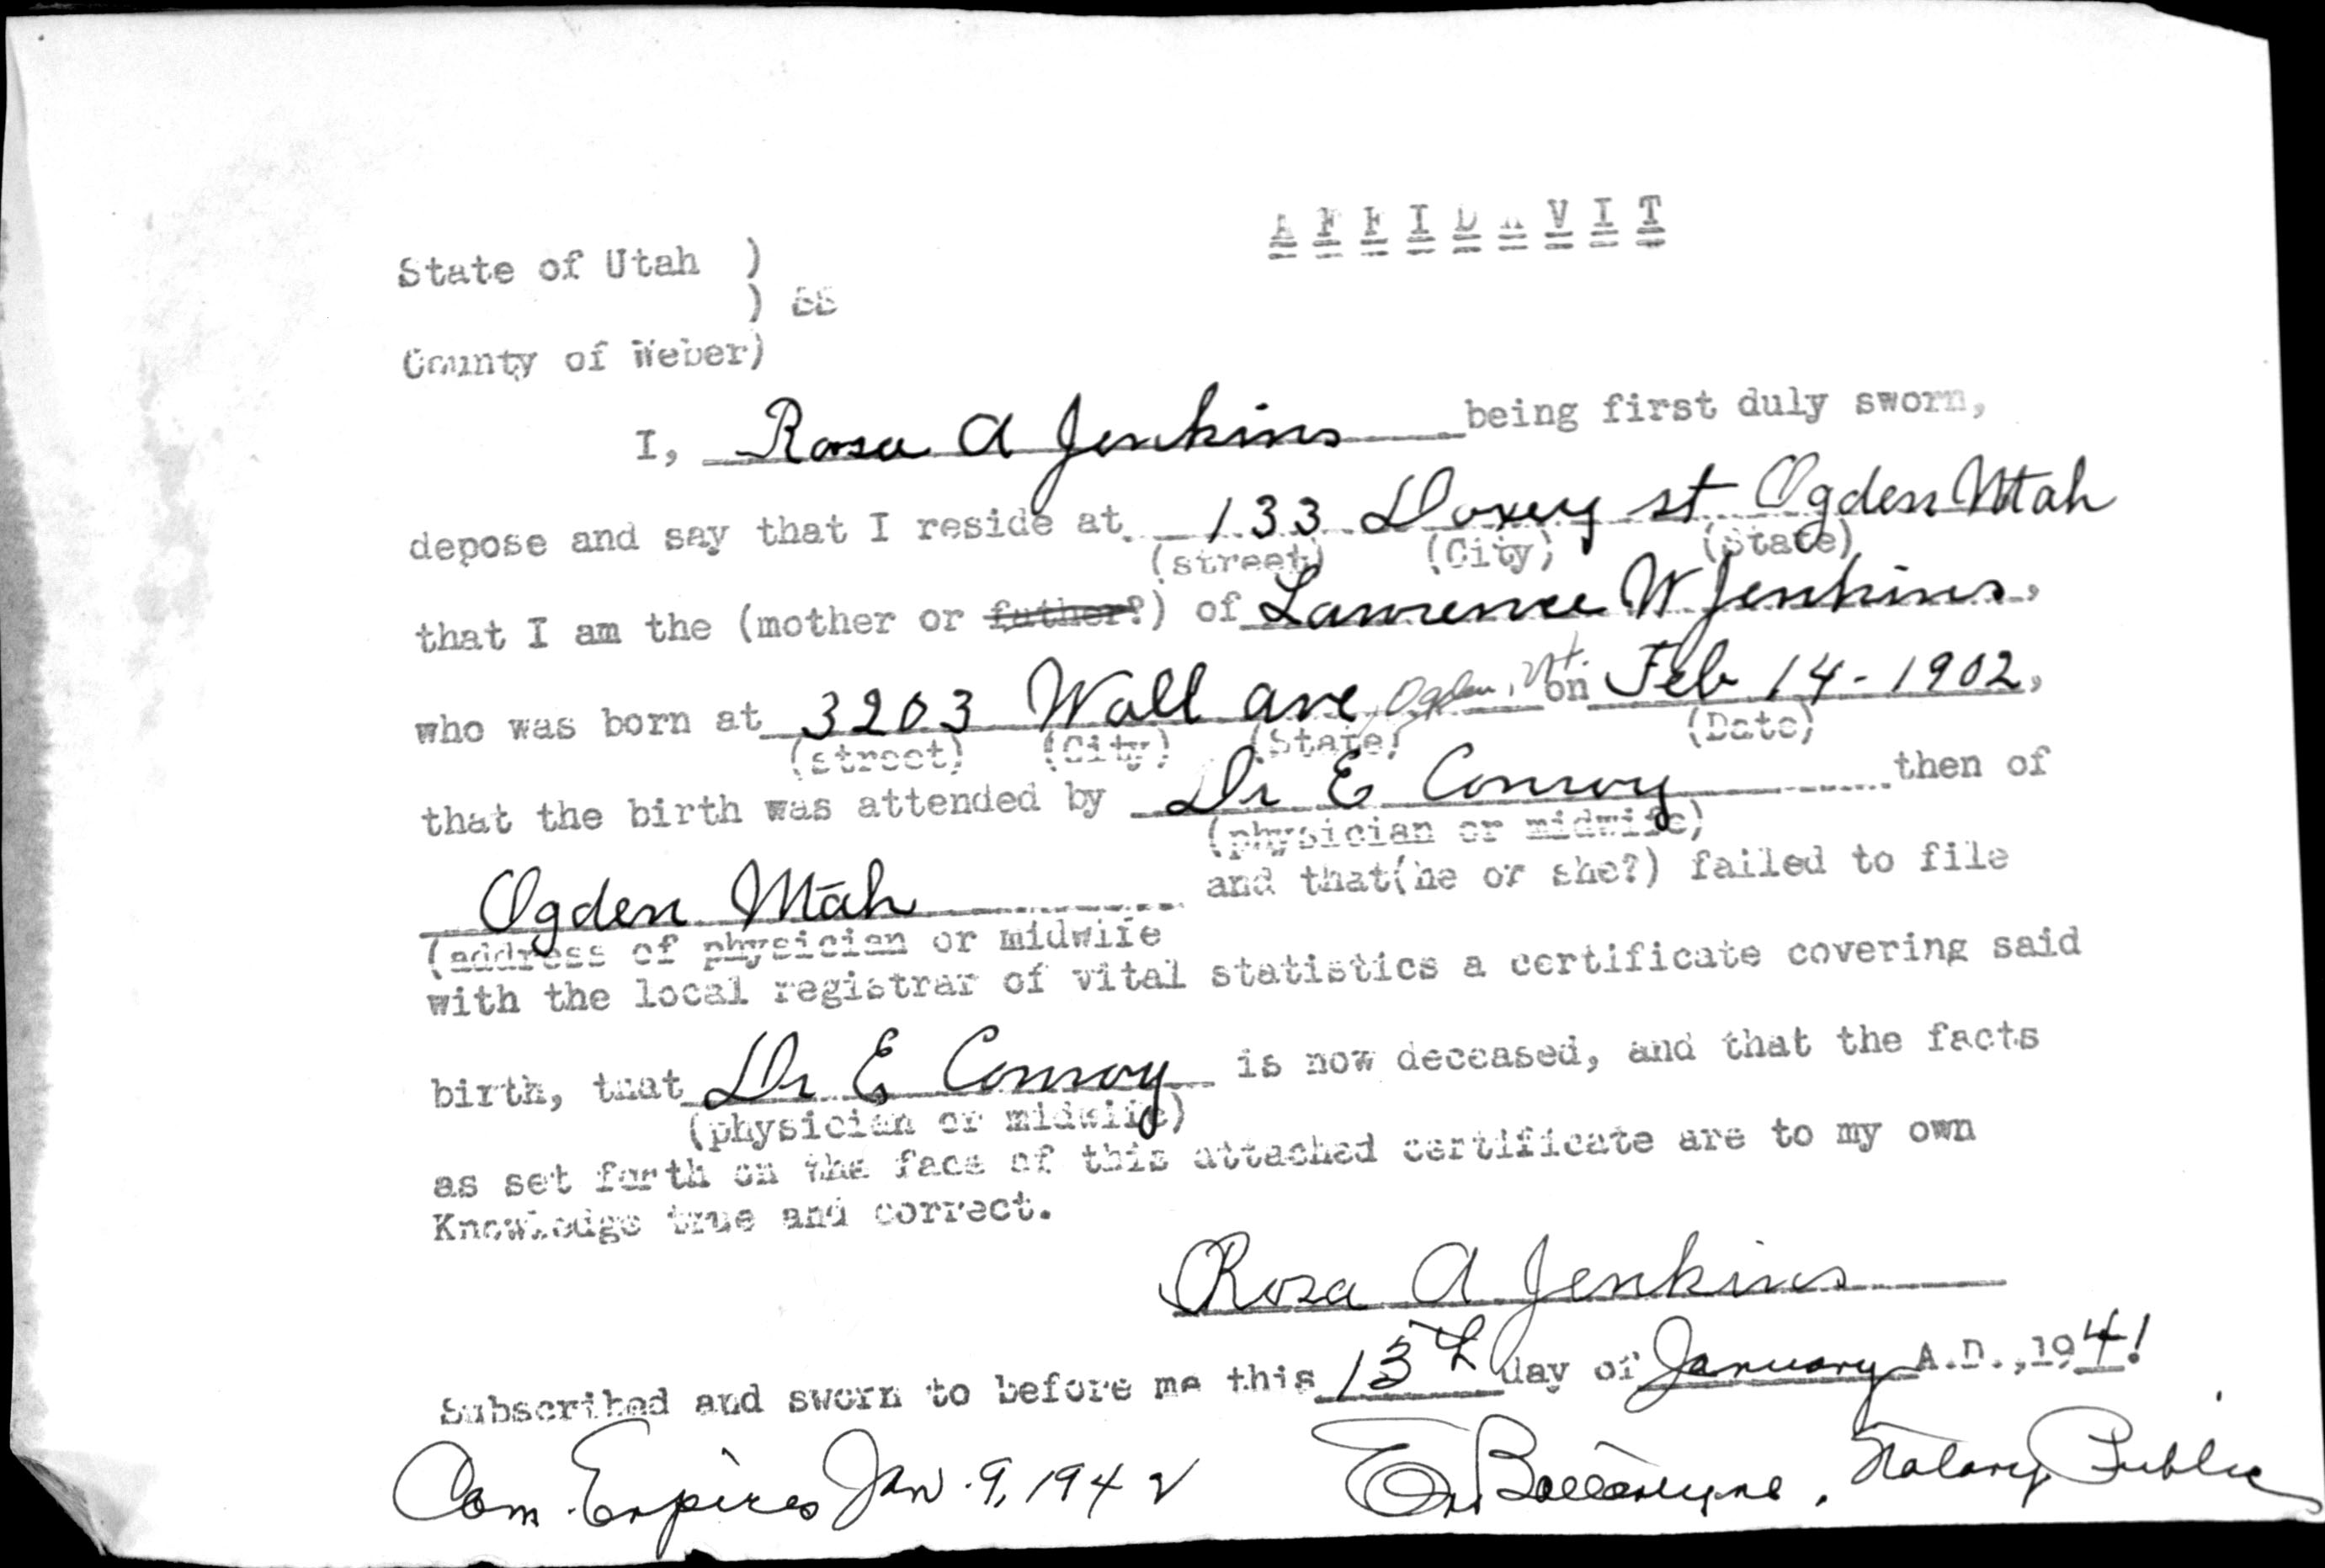 AFFIDAVIT
State of Utah )
) ss
County of Weber)
I, Rosa A Jenkins being first duly sworn,
depose and say that I reside at 133 Doxey st Ogden Utah
(street) (City) (State)
that I am the (mother or father?) of Lawrence W Jenkins,
who was born at 3203 Wall ave Ogden, Ut. on Feb 14-1902,
(street) (City) (State) (Date)
that the birth was attended by Dr E Conroy then of
(physician or midwife)
Ogden Utah and that(he or she?) failed to file
(address of physician or midwife
with the local registrar of vital statistics a certificate covering said
birth, that Dr E Conroy is now deceased, and that the facts
(physician or midwife)
as set forth on the face of this attached certificate are to my own
Knowledge true and correct.
Rosa A Jenkins
Subscribed and sworn to before me this 13th day of January A.D.,1941
Com. Expires Jan. 9, 1942 Ballantyne, Notary Public